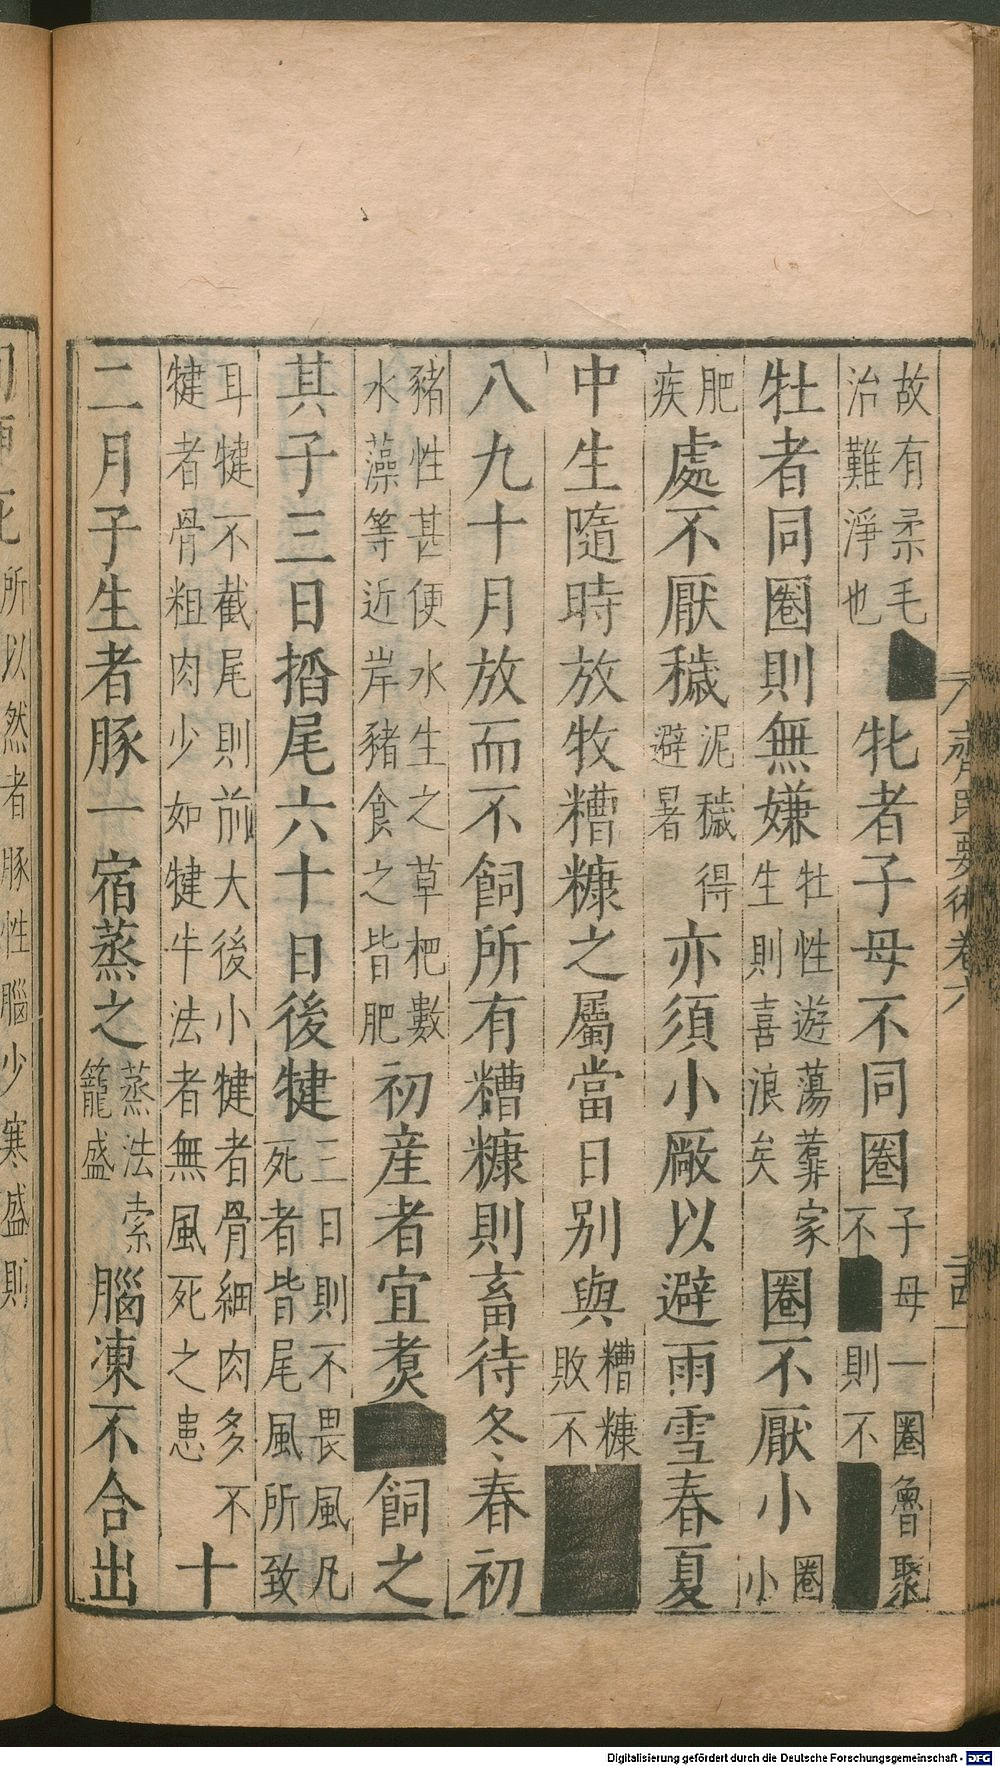 故有柔毛
治難淨也
牝者子母不同圈
子母一圈魯聚
不■則不■
牡者同圈則無嫌
牡性遊蕩𦮼家
生則喜浪矣
圈不厭小
圈小
肥疾
處不厭穢
泥穢得
避暑
亦須小廠以避雨雪春夏
中生隨時放牧糟糠之屬當日別與
糟糠
敗不■
八九十月放而不飼所有糟糠則畜待冬春初
豬性甚便水生之草杷數
水藻等近岸豬食之皆肥
初産者宜煑■飼之
其子三日搯尾六十日後犍
三日則不畏風凡
死者皆尾風所致
耳犍不截尾則前大後小犍者骨細肉多不
犍者骨粗肉少如犍牛法者無風死之患
十
二月子生者豚一宿蒸之
蒸法索
籠盛
腦凍不合出
所以然者豚性腦少寒盛則
齊民要術卷六
二四
Digitalisierung gefördert durch die Deutsche Forschungsgemeinschaft - DFG